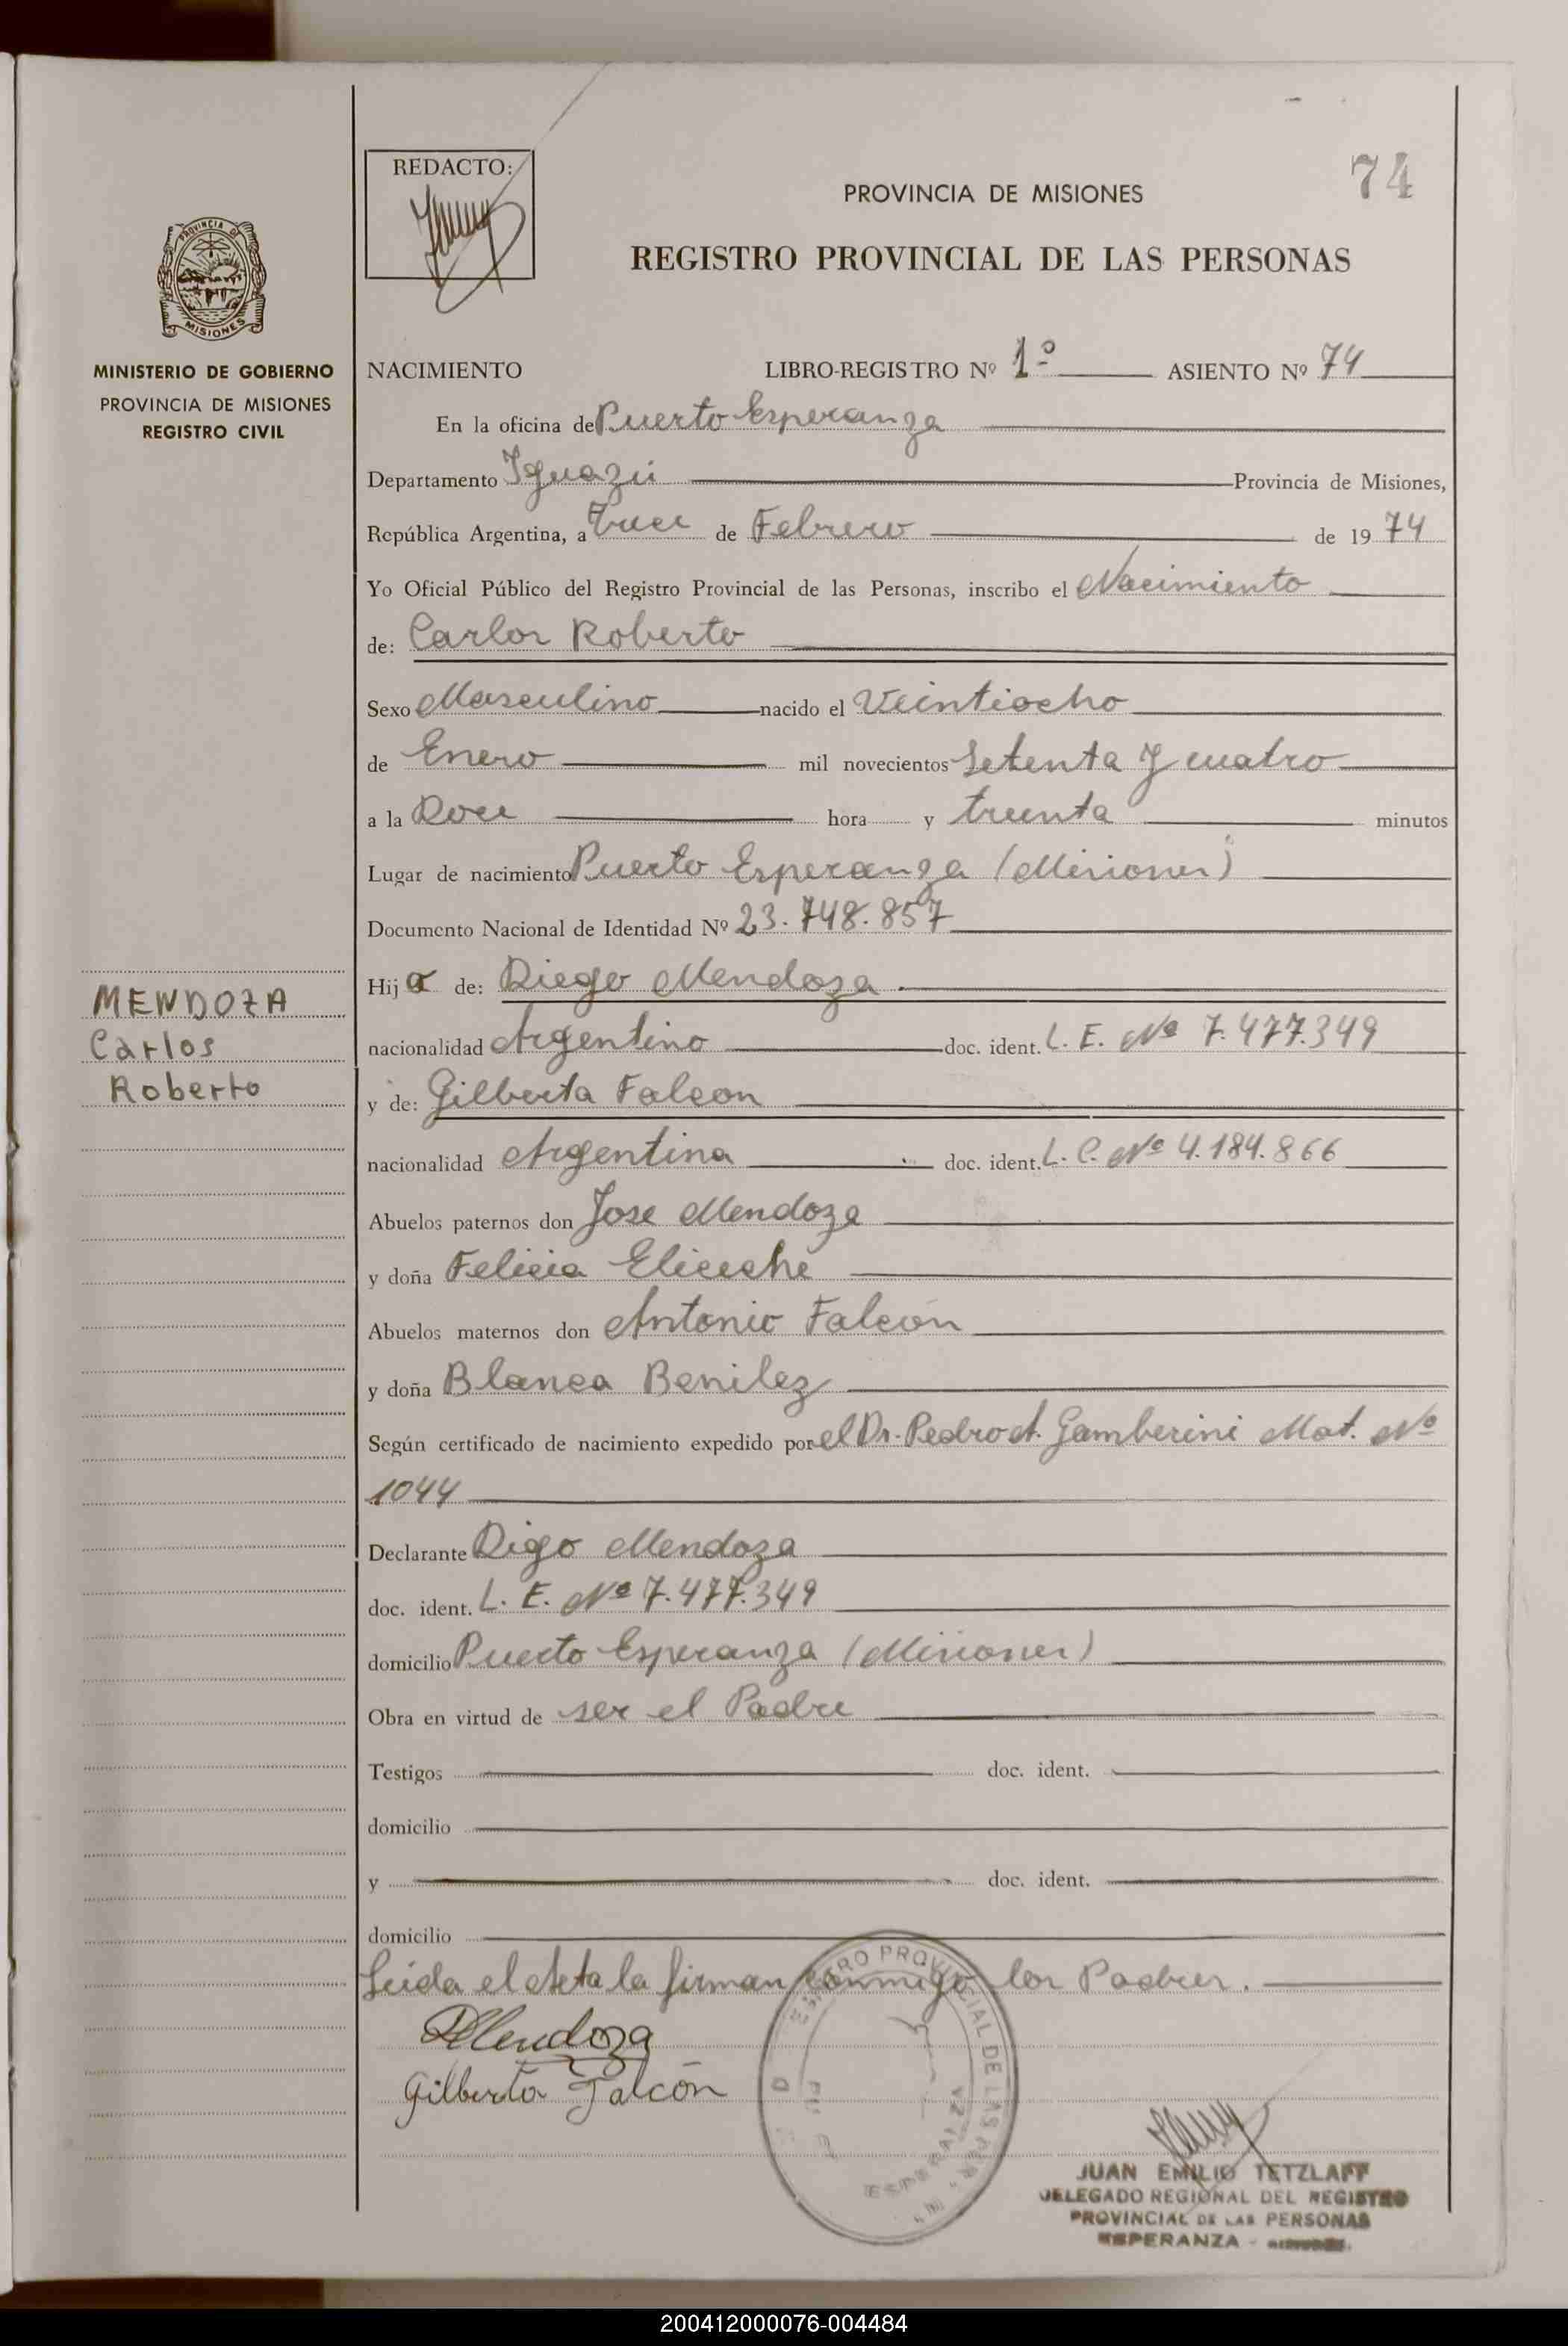 74
REDACTO:
PROVINCIA DE MISIONES
REGISTRO PROVINCIAL DE LAS PERSONAS
PROVINCIA DE
MISIONES
MINISTERIO DE GOBIERNO
PROVINCIA DE MISIONES
REGISTRO CIVIL
NACIMIENTO LIBRO-REGISTRO Nº 1º ASIENTO Nº 74
En la oficina de Puerto Esperanza
Departamento Iguazú Provincia de Misiones,
República Argentina, a Trece de Febrero de 1974
Yo Oficial Público del Registro Provincial de las Personas, inscribo el Nacimiento
de: Carlos Roberto
Sexo Masculino nacido el Veintiocho
de Enero mil novecientos Setenta y cuatro
a la Doce hora y treinta minutos
Lugar de nacimiento Puerto Esperanza (Misiones)
Documento Nacional de Identidad Nº 23.748.857
MENDOZA
Carlos
Roberto
Hijo de: Diego Mendoza
nacionalidad Argentino doc. ident. L. E. Nº 7.477.349
y de: Gilberta Falcon
nacionalidad Argentina doc. ident. L. C. Nº 4.184.866
Abuelos paternos don Jose Mendoza
y doña Felicia Eliceché
Abuelos maternos don Antonio Falcón
y doña Blanca Benilez
Según certificado de nacimiento expedido por el Dr. Pedro A. Gamberini Mat. Nº
1044
Declarante Digo Mendoza
doc. ident. L. E. Nº 7.477.349
domicilio Puerto Esperanza (Misiones)
Obra en virtud de ser el Padre
Testigos doc. ident.
domicilio
y doc. ident.
domicilio
Leida el Acta la firman conmigo los Padres.
DMendoza
Gilberta Falcón
PROVINCIAL DE LAS PER
JUAN EMILIO TETZLAFF
DELEGADO REGIONAL DEL REGISTRO
PROVINCIAL DE LAS PERSONAS
ESPERANZA -
200412000076-004484